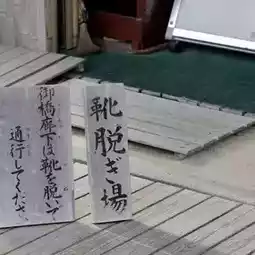 靴脱ぎ場
御橋廊下は靴を脱いで
通行してくださ